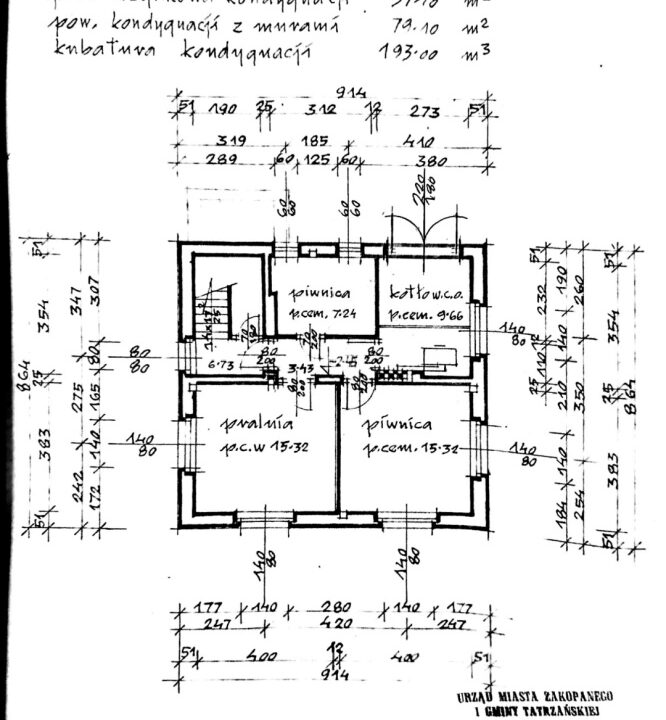 pow. kondygnacji z murami 79.10 m²
kubatura kondygnacji 193.00 m³
914
51 190 25 312 12 273 51
319 185 410
289 60 125 60 380
60
60
60
60
220
180
51 354 25 383 51
864
347 275 242
307 80 165 140 172
piwnica
p.cem. 7.24
kotłow.c.o.
p.cem. 9.66
80
80
140
80
6.73
3.43
80
200
80
200
80
200
pralnia
p.c.w 15.32
piwnica
p.cem. 15.32
140
80
140
80
140
80
140
80
51 232 12 110 25
190 140 210 140 184
260 350 254
51 354 25 383 51
864
177 140 280 140 177
247 420 247
51 400 12 400 51
914
URZĄD MIASTA ZAKOPANEGO
I GMINY TATRZAŃSKIEJ